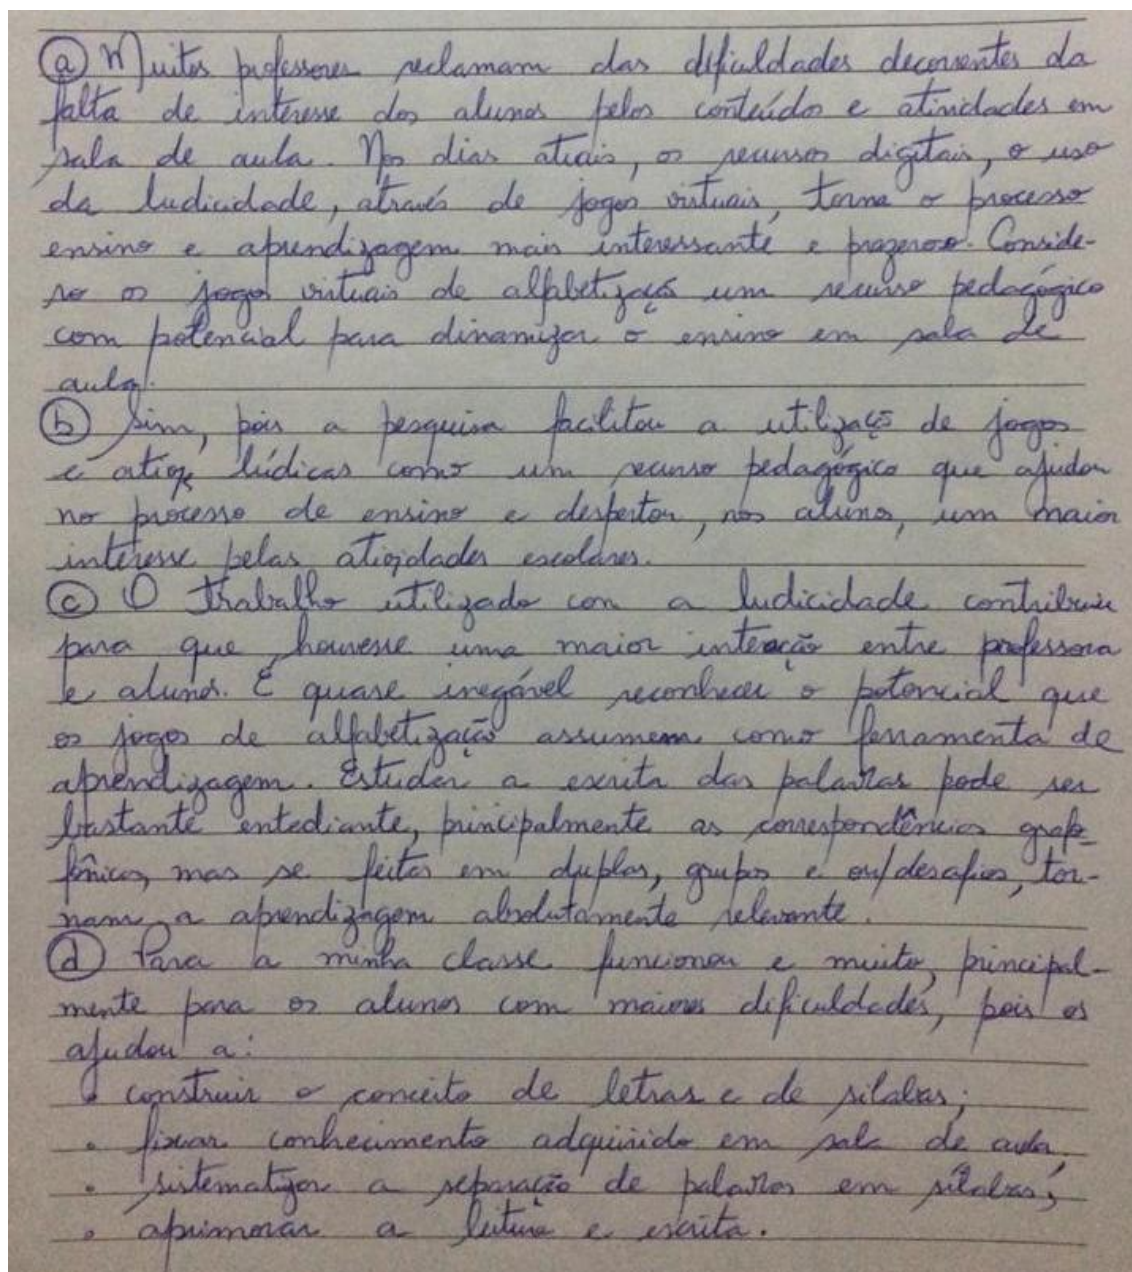 ⓐ Muitos professores reclamam das dificuldades decorrentes da
falta de interesse dos alunos pelos conteúdo e atividades em
sala de aula. Nos dias atuais, os recursos digitais, o uso
da ludicidade, através de jogos virtuais, torna o processo
ensino e aprendizagem mais interessante e prazeroso. Conside-
ro os jogos virtuais de alfabetização um recurso pedagógico
com potencial para dinamizar o ensino em sala de
aula.
ⓑ Sim, pois a pesquisa facilitou a utilização de jogos
e lúdicas como um recurso pedagógico que ajudou
no processo de ensino e despertou, nos alunos, um maior
interesse pelas atividades escolares.
ⓒ O trabalho utilizado com a ludicidade contribuiu
para que houvesse uma maior interação entre professora
e alunos. É quase inegável reconhecer o potencial que
os jogos de alfabetização assumem como ferramenta de
aprendizagem. Estudar a escrita das palavras pode ser
bastante entediante, principalmente as correspondências grafo-
fônicas, mas se feitos em duplas, grupos e ou/desafios, tor-
nam a aprendizagem absolutamente relevante.
ⓓ Para a minha classe funcionou e muito, principal-
mente para os alunos com maiores dificuldades, pois os
ajudou a:
• construir o conceito de letras e de sílabas;
• fixar conhecimento adquirido em sala de aula;
• sistematizar a separação de palavras em sílabas;
• aprimorar a leitura e escrita.